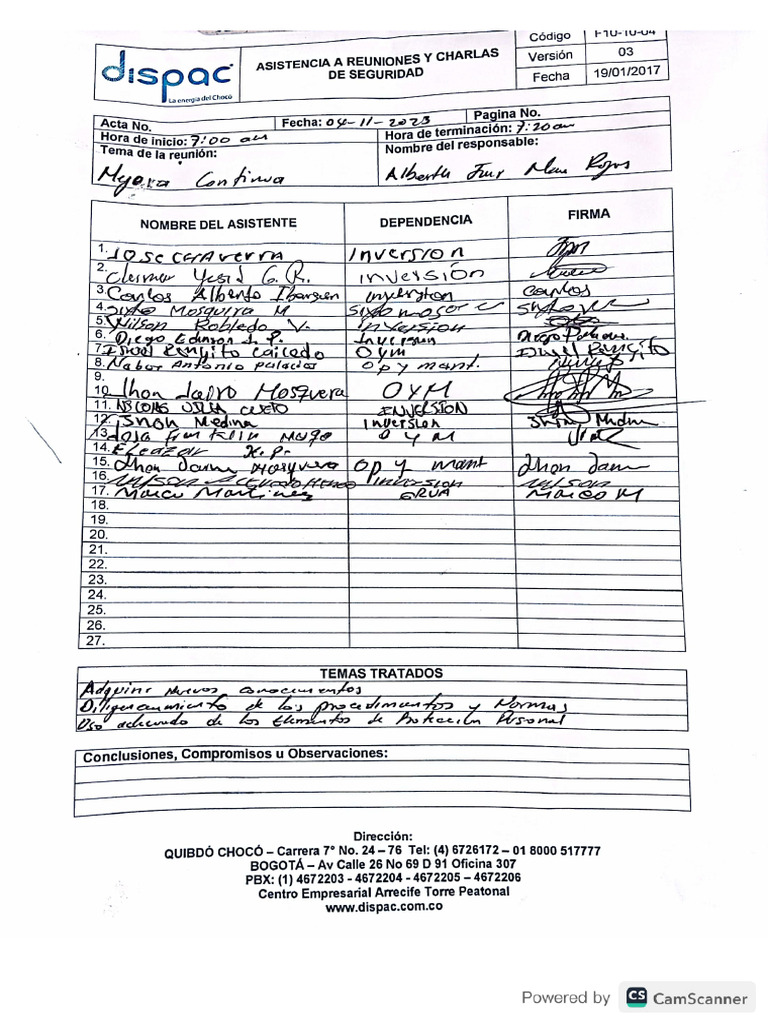 dispac
La energía del Chocó
ASISTENCIA A REUNIONES Y CHARLAS
DE SEGURIDAD
Código F10-10-04
Versión 03
Fecha 19/01/2017
Acta No. Fecha: 04-11-2023 Pagina No.
Hora de inicio: 7:00 am Hora de terminación: 7:20am
Tema de la reunión: Nombre del responsable:
Mejora Continua Alberth
NOMBRE DEL ASISTENTE DEPENDENCIA FIRMA
1. JOSE Inversion
2. Yesid G.R. inversión
3. Carlos Alberto Ibarguen inversion Carlos
4. Sixto Mosquera M
5. Wilson Robledo V. inversion
6. Diego Edinson Inversion Diego
7. Ismael Renyito Caicedo OYM Ismael
8. Nabor Antonio palacios op y mant.
9.
10. Jhon Jairo Mosquera OYM
11. INVERSION
12. Jhon Medina Inversion
13. OYM
14. Eleazar H.P.
15. Jhon op y mant Jhon
16. Wilson inversion Wilson
17. Marco Martinez GRUA Marco M
18.
19.
20.
21.
22.
23.
24.
25.
26.
27.
TEMAS TRATADOS
Adquirir Nuevos conocimientos
Diligenciamiento de los procedimientos y Normas
Uso adecuado de los Elementos de Protección Personal
Conclusiones, Compromisos u Observaciones:
Dirección:
QUIBDÓ CHOCÓ – Carrera 7° No. 24 – 76 Tel: (4) 6726172 – 01 8000 517777
BOGOTÁ – Av Calle 26 No 69 D 91 Oficina 307
PBX: (1) 4672203 - 4672204 - 4672205 – 4672206
Centro Empresarial Arrecife Torre Peatonal
www.dispac.com.co
Powered by CS CamScanner